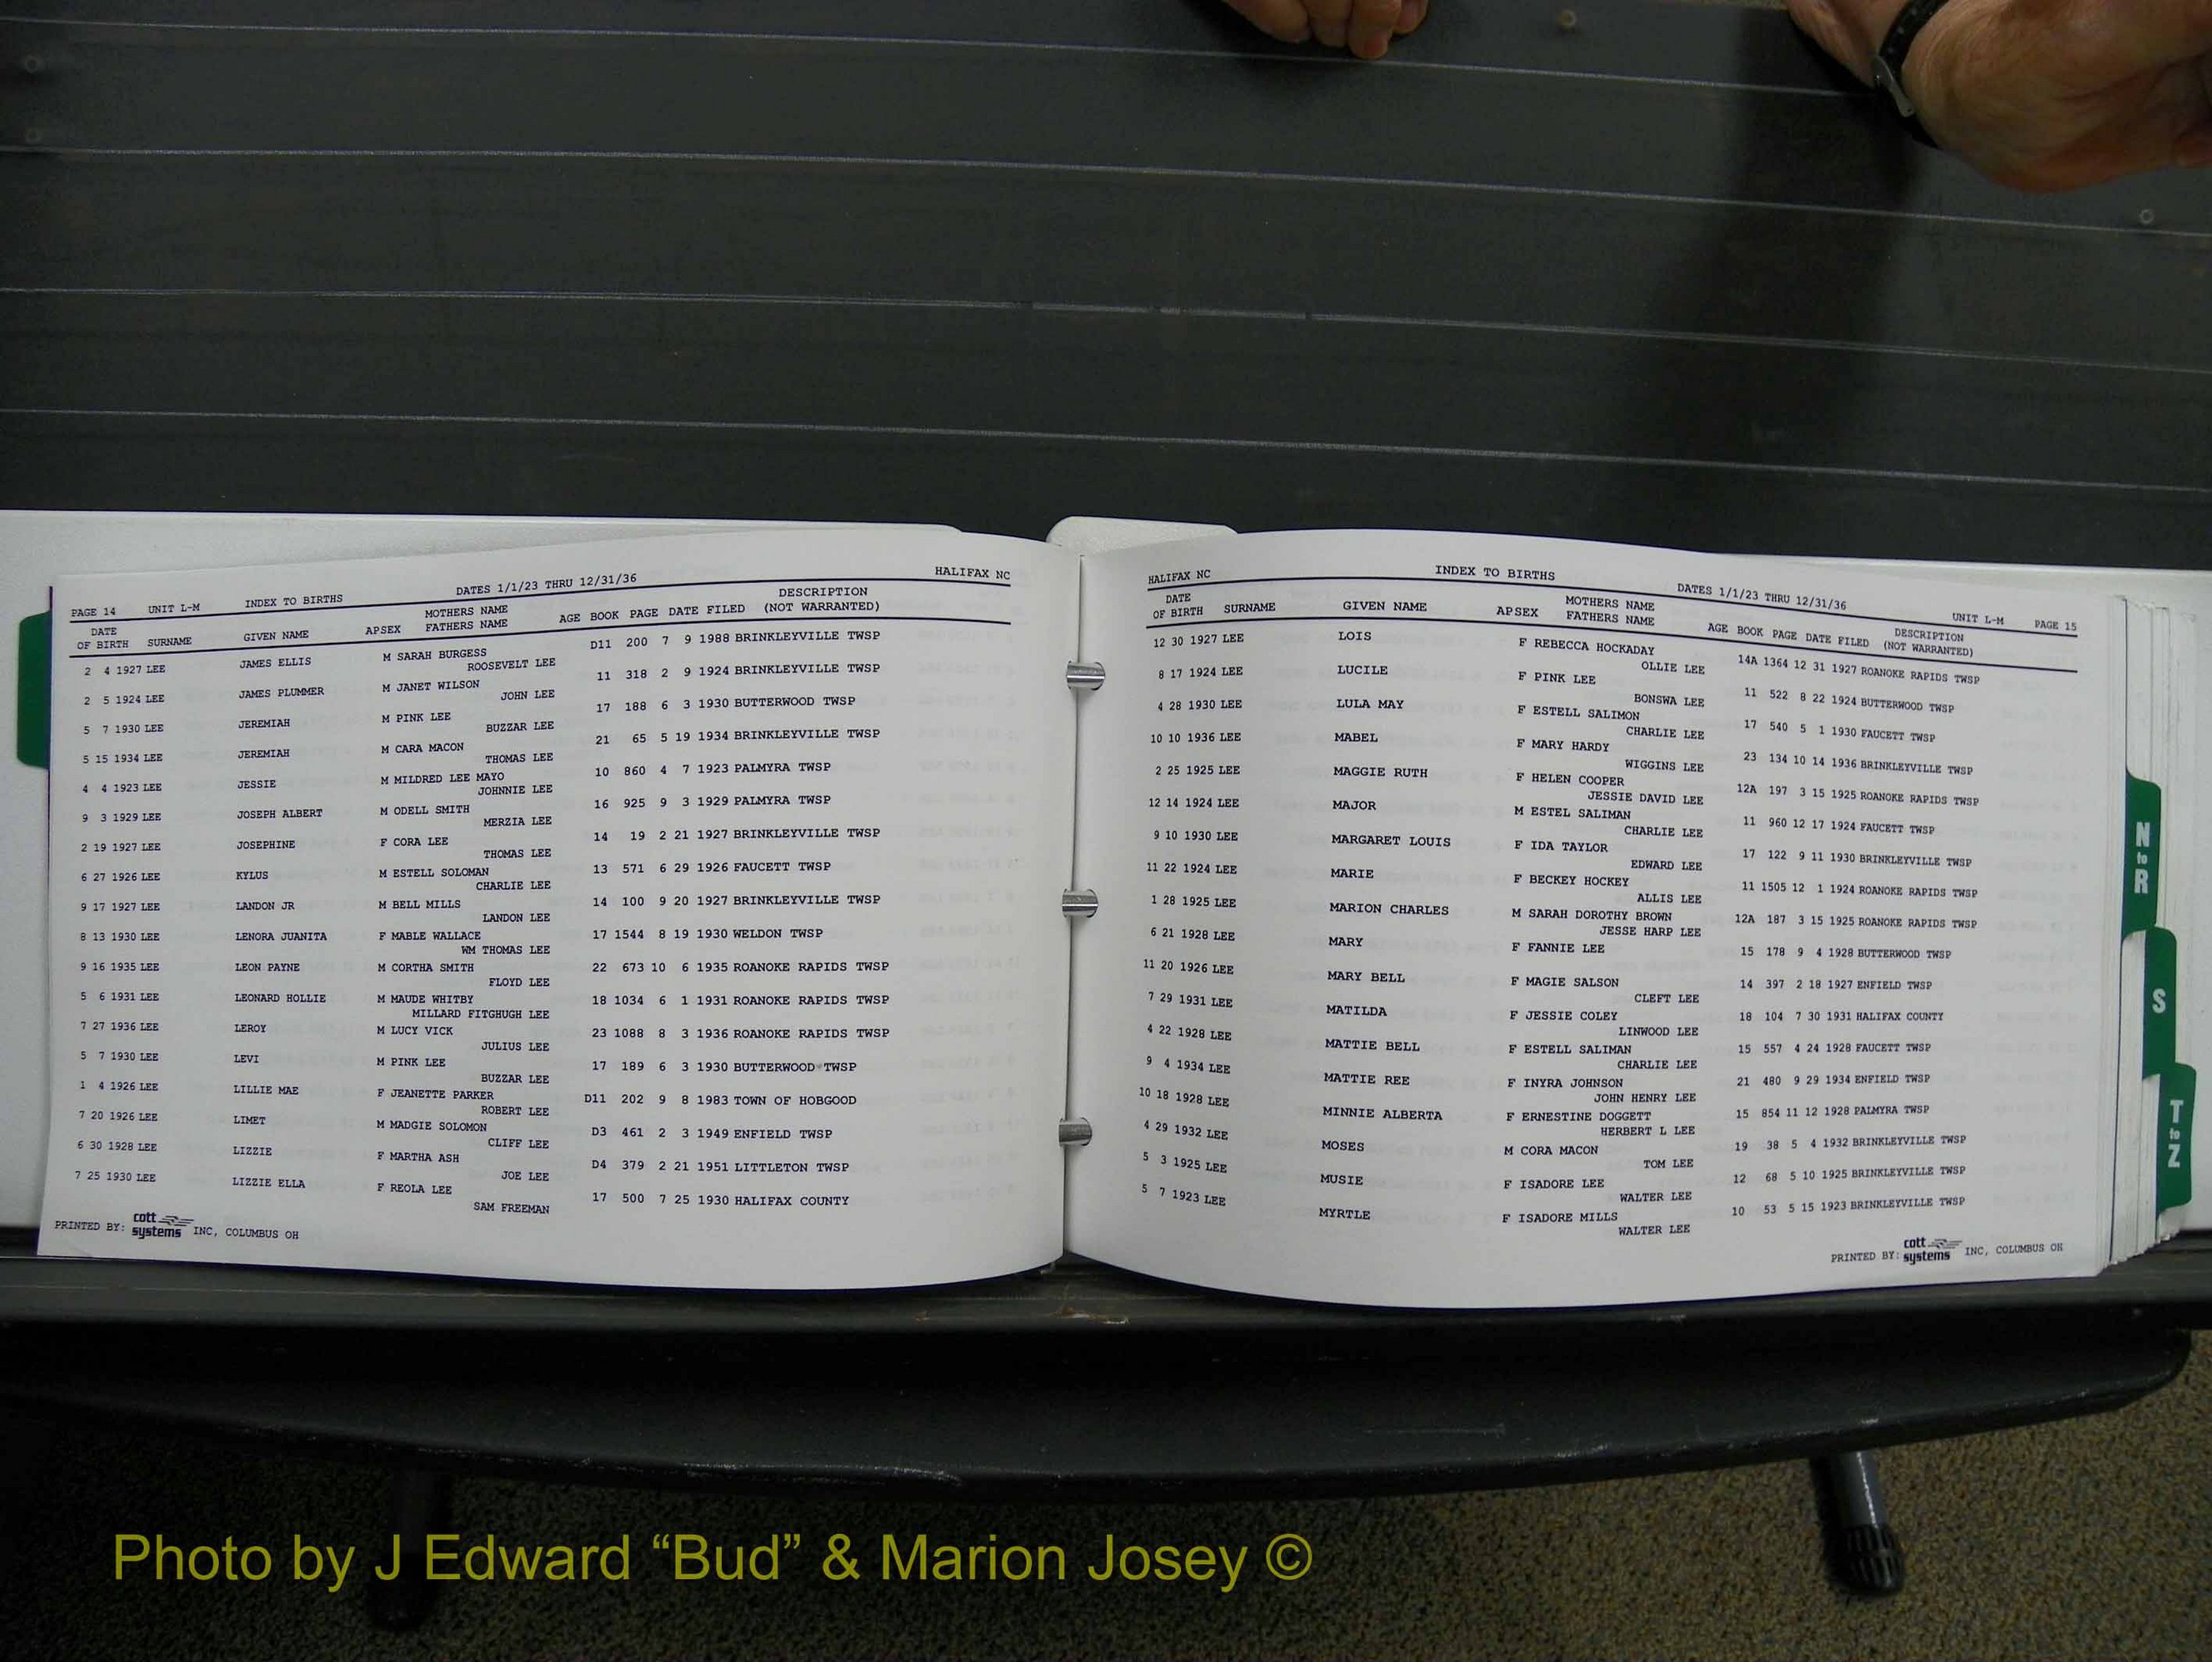 PAGE 14 UNIT L-M INDEX TO BIRTHS DATES 1/1/23 THRU 12/31/36 HALIFAX NC
DATE OF BIRTH SURNAME GIVEN NAME APSEX MOTHERS NAME FATHERS NAME AGE BOOK PAGE DATE FILED DESCRIPTION (NOT WARRANTED)
2 4 1927 LEE JAMES ELLIS M SARAH BURGESS D11 200 7 9 1988 BRINKLEYVILLE TWSP
ROOSEVELT LEE
2 5 1924 LEE JAMES PLUMMER M JANET WILSON 11 318 2 9 1924 BRINKLEYVILLE TWSP
JOHN LEE
5 7 1930 LEE JEREMIAH M PINK LEE 17 188 6 3 1930 BUTTERWOOD TWSP
BUZZAR LEE
5 15 1934 LEE JEREMIAH M CARA MACON 21 65 5 19 1934 BRINKLEYVILLE TWSP
THOMAS LEE
4 4 1923 LEE JESSIE M MILDRED LEE MAYO 10 860 4 7 1923 PALMYRA TWSP
JOHNNIE LEE
9 3 1929 LEE JOSEPH ALBERT M ODELL SMITH 16 925 9 3 1929 PALMYRA TWSP
MERZIA LEE
2 19 1927 LEE JOSEPHINE F CORA LEE 14 19 2 21 1927 BRINKLEYVILLE TWSP
THOMAS LEE
6 27 1926 LEE KYLUS M ESTELL SOLOMAN 13 571 6 29 1926 FAUCETT TWSP
CHARLIE LEE
9 17 1927 LEE LANDON JR M BELL MILLS 14 100 9 20 1927 BRINKLEYVILLE TWSP
LANDON LEE
8 13 1930 LEE LENORA JUANITA F MABLE WALLACE 17 1544 8 19 1930 WELDON TWSP
WM THOMAS LEE
9 16 1935 LEE LEON PAYNE M CORTHA SMITH 22 673 10 6 1935 ROANOKE RAPIDS TWSP
FLOYD LEE
5 6 1931 LEE LEONARD HOLLIE M MAUDE WHITBY 18 1034 6 1 1931 ROANOKE RAPIDS TWSP
MILLARD FITGHUGH LEE
7 27 1936 LEE LEROY M LUCY VICK 23 1088 8 3 1936 ROANOKE RAPIDS TWSP
JULIUS LEE
5 7 1930 LEE LEVI M PINK LEE 17 189 6 3 1930 BUTTERWOOD TWSP
BUZZAR LEE
1 4 1926 LEE LILLIE MAE F JEANETTE PARKER D11 202 9 8 1983 TOWN OF HOBGOOD
ROBERT LEE
7 20 1926 LEE LIMET M MADGIE SOLOMON D3 461 2 3 1949 ENFIELD TWSP
CLIFF LEE
6 30 1928 LEE LIZZIE F MARTHA ASH D4 379 2 21 1951 LITTLETON TWSP
JOE LEE
7 25 1930 LEE LIZZIE ELLA F REOLA LEE 17 500 7 25 1930 HALIFAX COUNTY
SAM FREEMAN
PRINTED BY: cott systems INC, COLUMBUS OH
HALIFAX NC INDEX TO BIRTHS DATES 1/1/23 THRU 12/31/36 UNIT L-M PAGE 15
DATE OF BIRTH SURNAME GIVEN NAME APSEX MOTHERS NAME FATHERS NAME AGE BOOK PAGE DATE FILED DESCRIPTION (NOT WARRANTED)
12 30 1927 LEE LOIS F REBECCA HOCKADAY 14A 1364 12 31 1927 ROANOKE RAPIDS TWSP
OLLIE LEE
8 17 1924 LEE LUCILE F PINK LEE 11 522 8 22 1924 BUTTERWOOD TWSP
BONSWA LEE
4 28 1930 LEE LULA MAY F ESTELL SALIMON 17 540 5 1 1930 FAUCETT TWSP
CHARLIE LEE
10 10 1936 LEE MABEL F MARY HARDY 23 134 10 14 1936 BRINKLEYVILLE TWSP
WIGGINS LEE
2 25 1925 LEE MAGGIE RUTH F HELEN COOPER 12A 197 3 15 1925 ROANOKE RAPIDS TWSP
JESSIE DAVID LEE
12 14 1924 LEE MAJOR M ESTEL SALIMAN 11 960 12 17 1924 FAUCETT TWSP
CHARLIE LEE
9 10 1930 LEE MARGARET LOUIS F IDA TAYLOR 17 122 9 11 1930 BRINKLEYVILLE TWSP
EDWARD LEE
11 22 1924 LEE MARIE F BECKEY HOCKEY 11 1505 12 1 1924 ROANOKE RAPIDS TWSP
ALLIS LEE
1 28 1925 LEE MARION CHARLES M SARAH DOROTHY BROWN 12A 187 3 15 1925 ROANOKE RAPIDS TWSP
JESSE HARP LEE
6 21 1928 LEE MARY F FANNIE LEE 15 178 9 4 1928 BUTTERWOOD TWSP
11 20 1926 LEE MARY BELL F MAGIE SALSON 14 397 2 18 1927 ENFIELD TWSP
CLEFT LEE
7 29 1931 LEE MATILDA F JESSIE COLEY 18 104 7 30 1931 HALIFAX COUNTY
LINWOOD LEE
4 22 1928 LEE MATTIE BELL F ESTELL SALIMAN 15 557 4 24 1928 FAUCETT TWSP
CHARLIE LEE
9 4 1934 LEE MATTIE REE F INYRA JOHNSON 21 480 9 29 1934 ENFIELD TWSP
JOHN HENRY LEE
10 18 1928 LEE MINNIE ALBERTA F ERNESTINE DOGGETT 15 854 11 12 1928 PALMYRA TWSP
HERBERT L LEE
4 29 1932 LEE MOSES M CORA MACON 19 38 5 4 1932 BRINKLEYVILLE TWSP
TOM LEE
5 3 1925 LEE MUSIE F ISADORE LEE 12 68 5 10 1925 BRINKLEYVILLE TWSP
WALTER LEE
5 7 1923 LEE MYRTLE F ISADORE MILLS 10 53 5 15 1923 BRINKLEYVILLE TWSP
WALTER LEE
PRINTED BY: cott systems INC, COLUMBUS OH
N to R
S
T to Z
Photo by J Edward “Bud” & Marion Josey ©